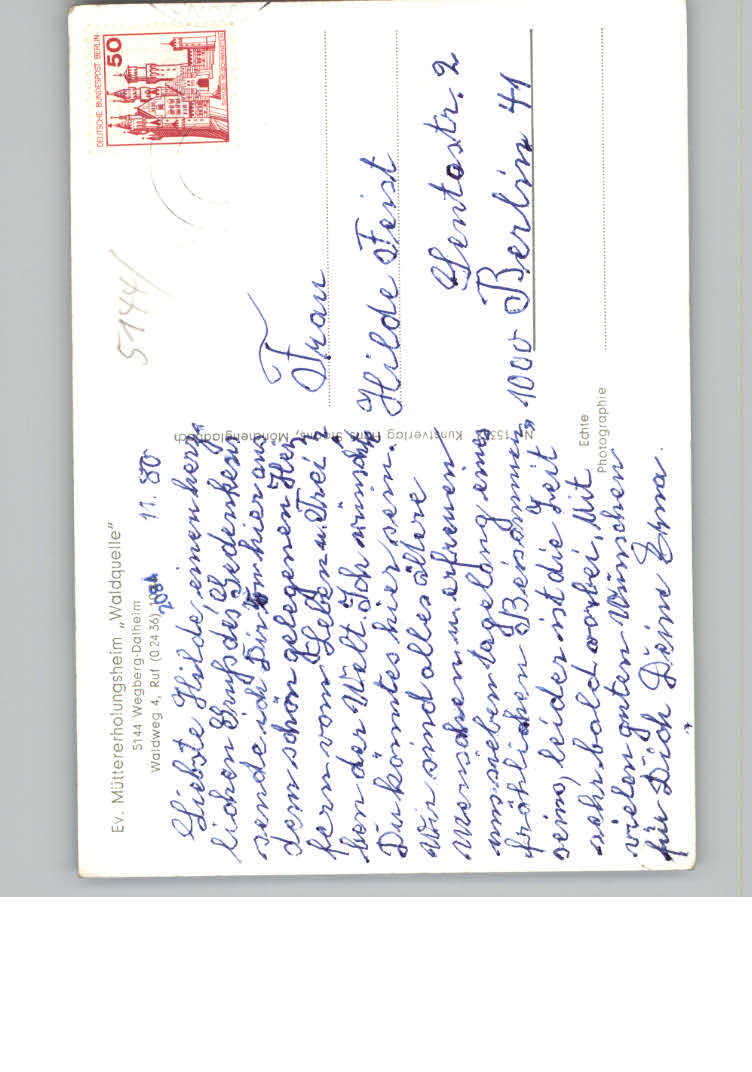 Ev. Müttererholungsheim „Waldquelle"
5144 Wegberg-Dalheim
Waldweg 4, Ruf (0 24 36)
2084
11. 80
Liebste Hilde, einen herz-
lichen Gruß des Gedenkens
sende ich Dir von hier aus
dem schön gelegenen Heim
fern vom Leben u. Trei-
ben der Welt. Ich wünschte
Du könntest hier sein.
Wir sind alles ältere
Menschen u. erfreuen
uns sieben tagelang eines
fröhlichen Beisammen-
seins, leider ist die Zeit
sehr bald vorbei. Mit
vielen guten Wünschen
für Dich Deine Erna.
Nr. Kunstverlag Hans Mönchengladbach
Echte
Photographie
5144/
DEUTSCHE BUNDESPOST BERLIN
50
Frau
Hilde Feist
Sentastr. 2
1000 Berlin 41